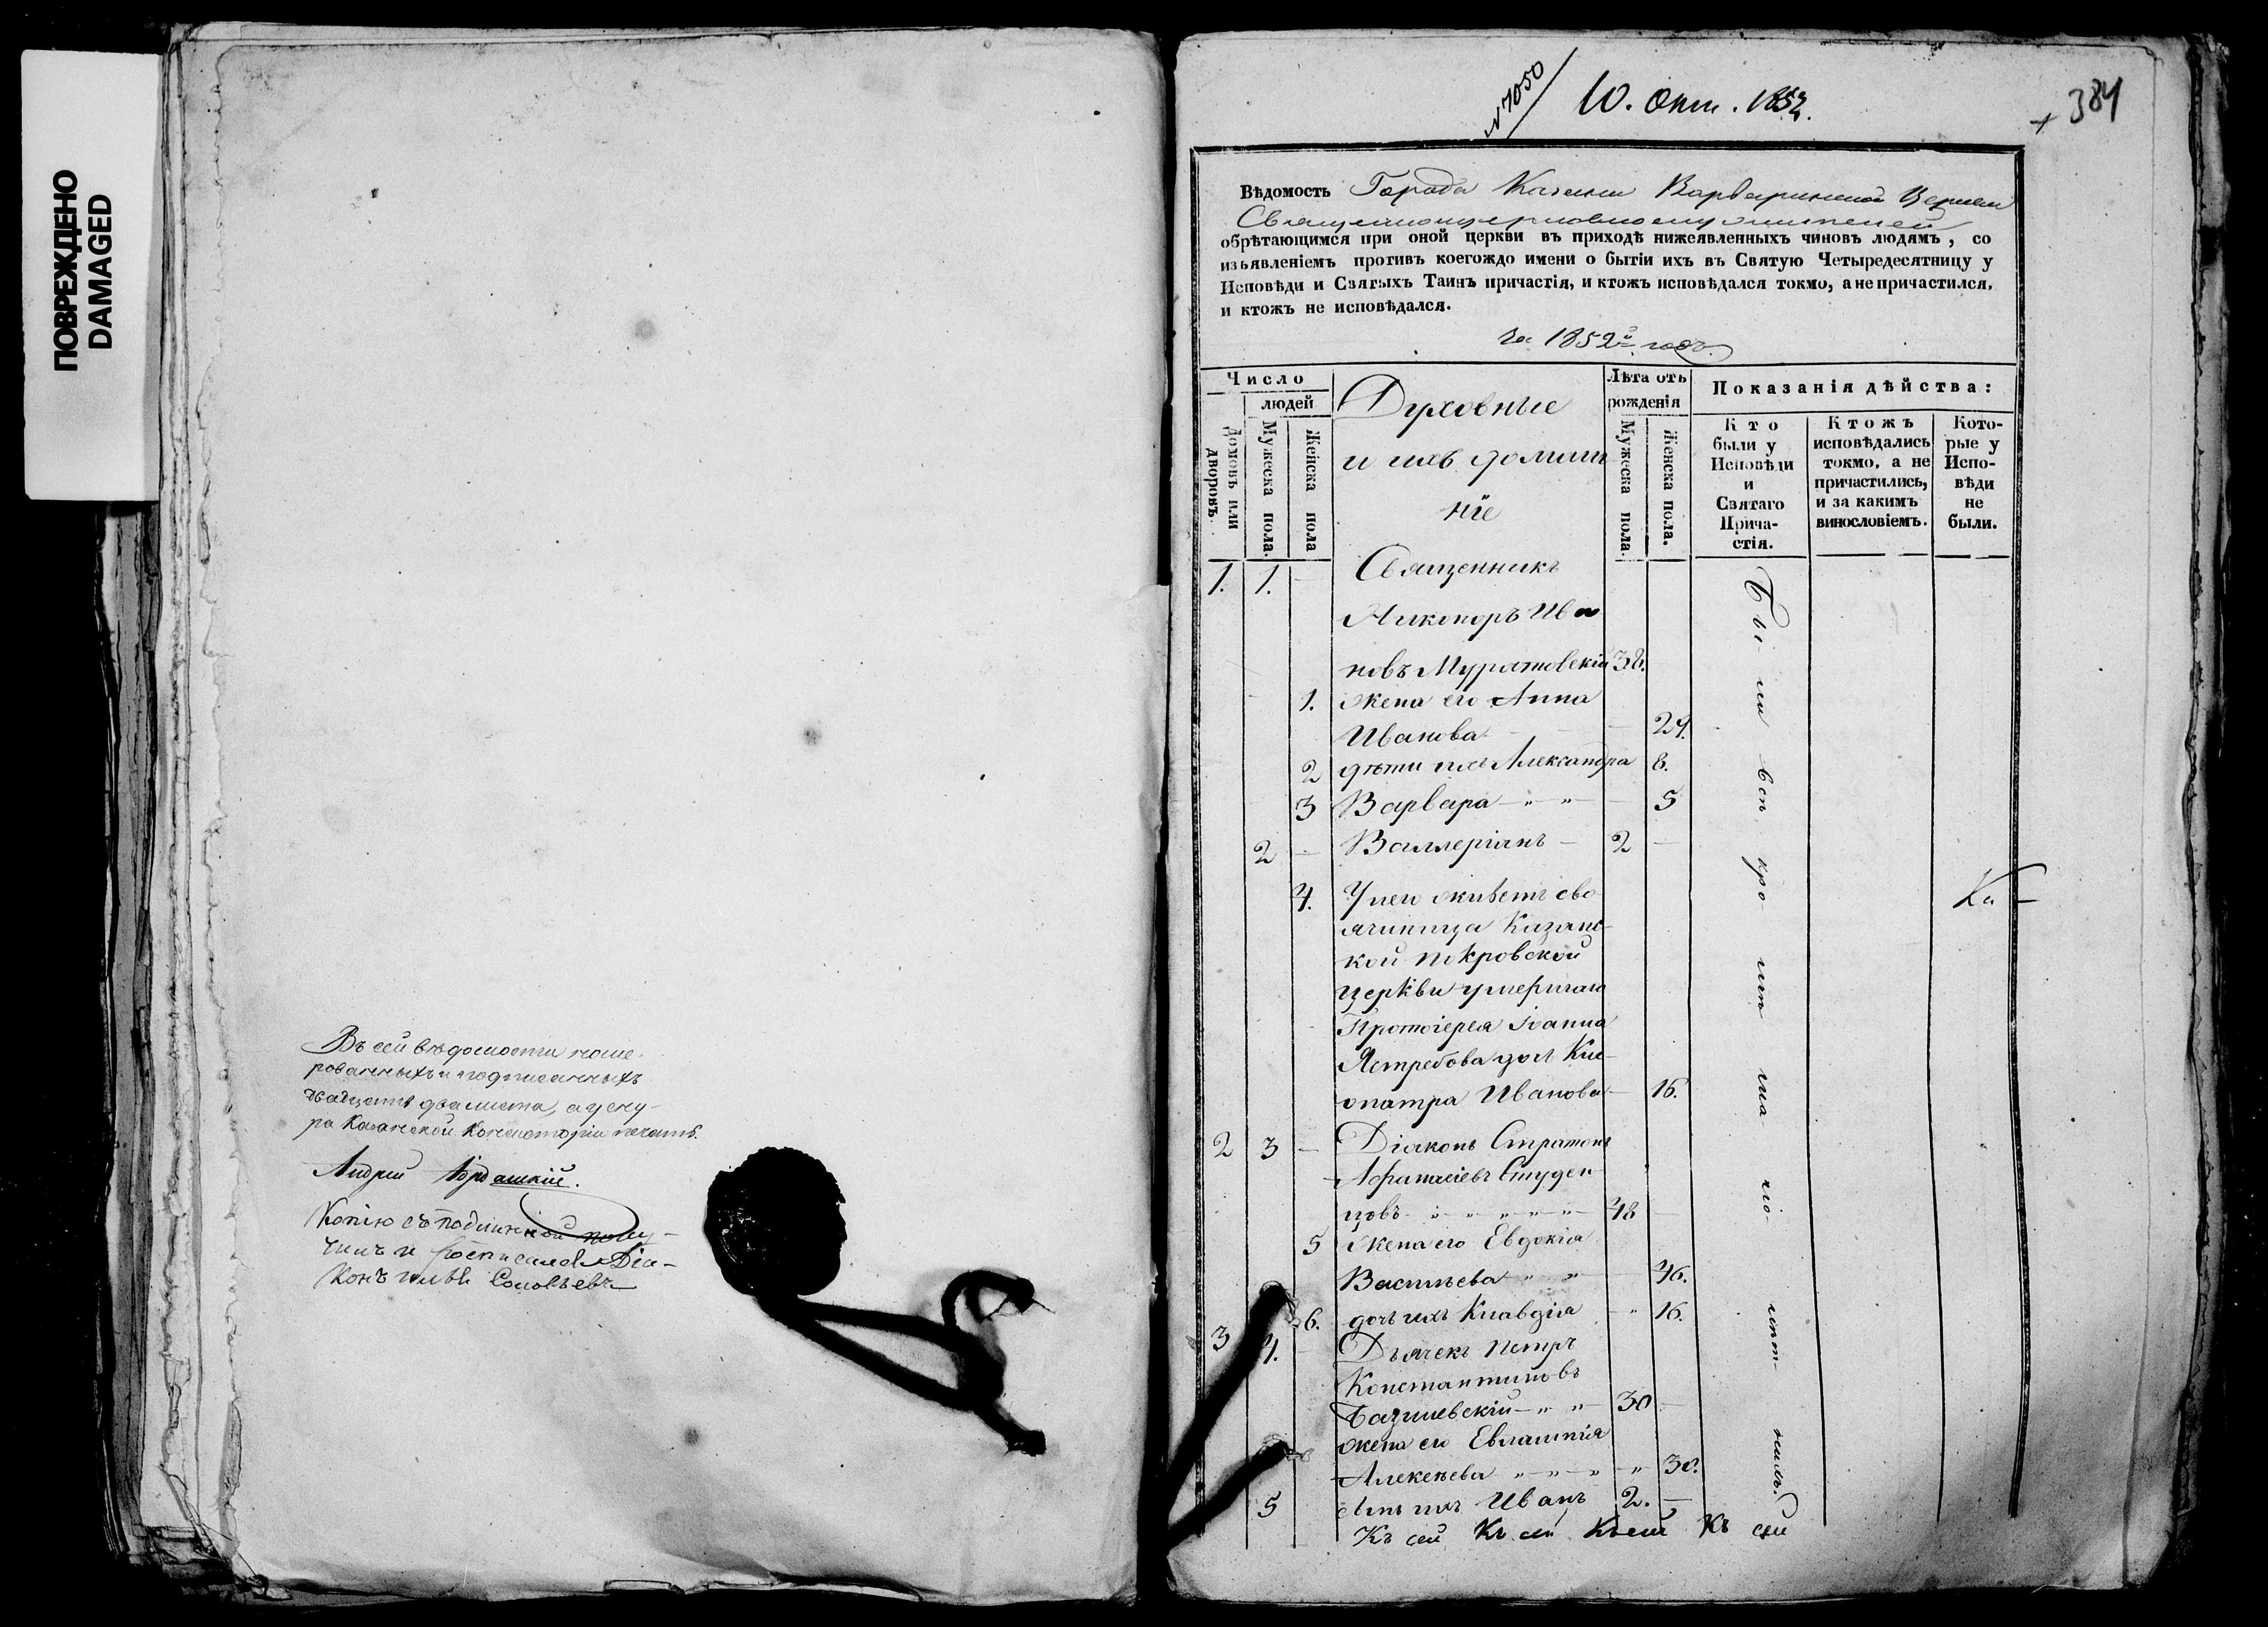 ПОВРЕЖДЕНО
DAMAGED
Въ сей вѣдомости номе-
рованныхъ и подписанныхъ
двадцать два листа, а у сну-
ра Казанской Консисторіи печать.
Андрей
Копію съ подлинной полу-
чилъ и росписался Діа-
конъ Соловьевъ
№ 7050
10. Окт. 1852.
+ 384
Вѣдомость Города Казани Варваринской Церкви
Священноцерковнослужителей
обрѣтающимся при оной церкви въ приходѣ нижеявленныхъ чиновъ людямъ, со
изъявленіемъ противъ коегождо имени о бытіи ихъ въ Святую Четыредесятницу у
Исповѣди и Святыхъ Таинъ причастія, и ктожъ исповѣдался токмо, а не причастился,
и ктожъ не исповѣдался.
За 1852й годъ.
Число
людей
Домовъ или дворовъ.
Мужеска пола.
Женска пола
Духовные
и ихъ домаш
ніе
Лѣта отъ
рожденія
Мужеска пола.
Женска пола.
Показанія дѣйства:
Кто
были у
Исповѣди
и
Святаго
Прича-
стія.
Ктожъ
исповѣдались
токмо, а не
причастились,
и за какимъ
винословіемъ.
Кото-
рые у
Испо-
вѣди
не
были.
1. 1. – Священникъ
Никоноръ Ива
новъ Муратовскій 38.
1. Жена его Анна
Иванова 29.
2 дѣти ихъ Александра 8.
3 Варвара – " – " – 5
2 – Валлеріанъ – 2 –
4. У него живетъ сво
яченица Казанс-
кой Покровской
Церкви умершаго
Протоіерея Іоанна
Ястребова дочь Кле-
опатра Иванова – 16.
2 3 – Діаконъ Стратонъ
Афанасіевъ Студен
цовъ – " – " – " – " – 48 –
5 Жена его Евдокія
Васильева " – " 46.
6. дочь ихъ Клавдія – " 16.
3 4. – Дьячекъ Петръ
Константиновъ
– " – " – 30 –
6 жена его Евлампія
Алексѣева " – " – " – " 30.
5 сынъ ихъ Иванъ 2. –
Бы- ли всѣ кро- мѣ ма- лѣт- нихъ.
Ка –
Къ сей Къ сей Къ сей Къ сей